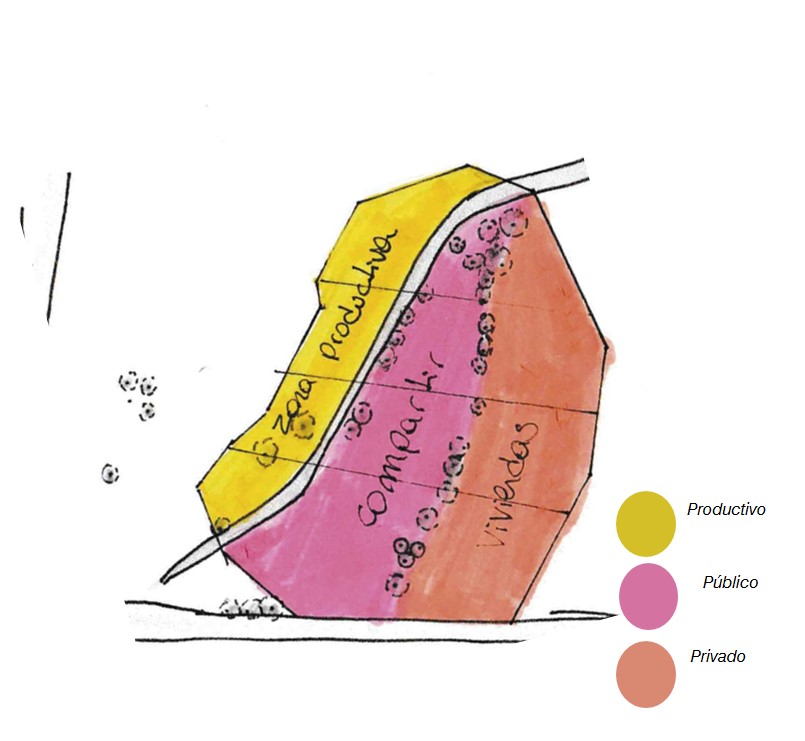 zona productiva
compartir
viviendas
Productivo
Público
Privado